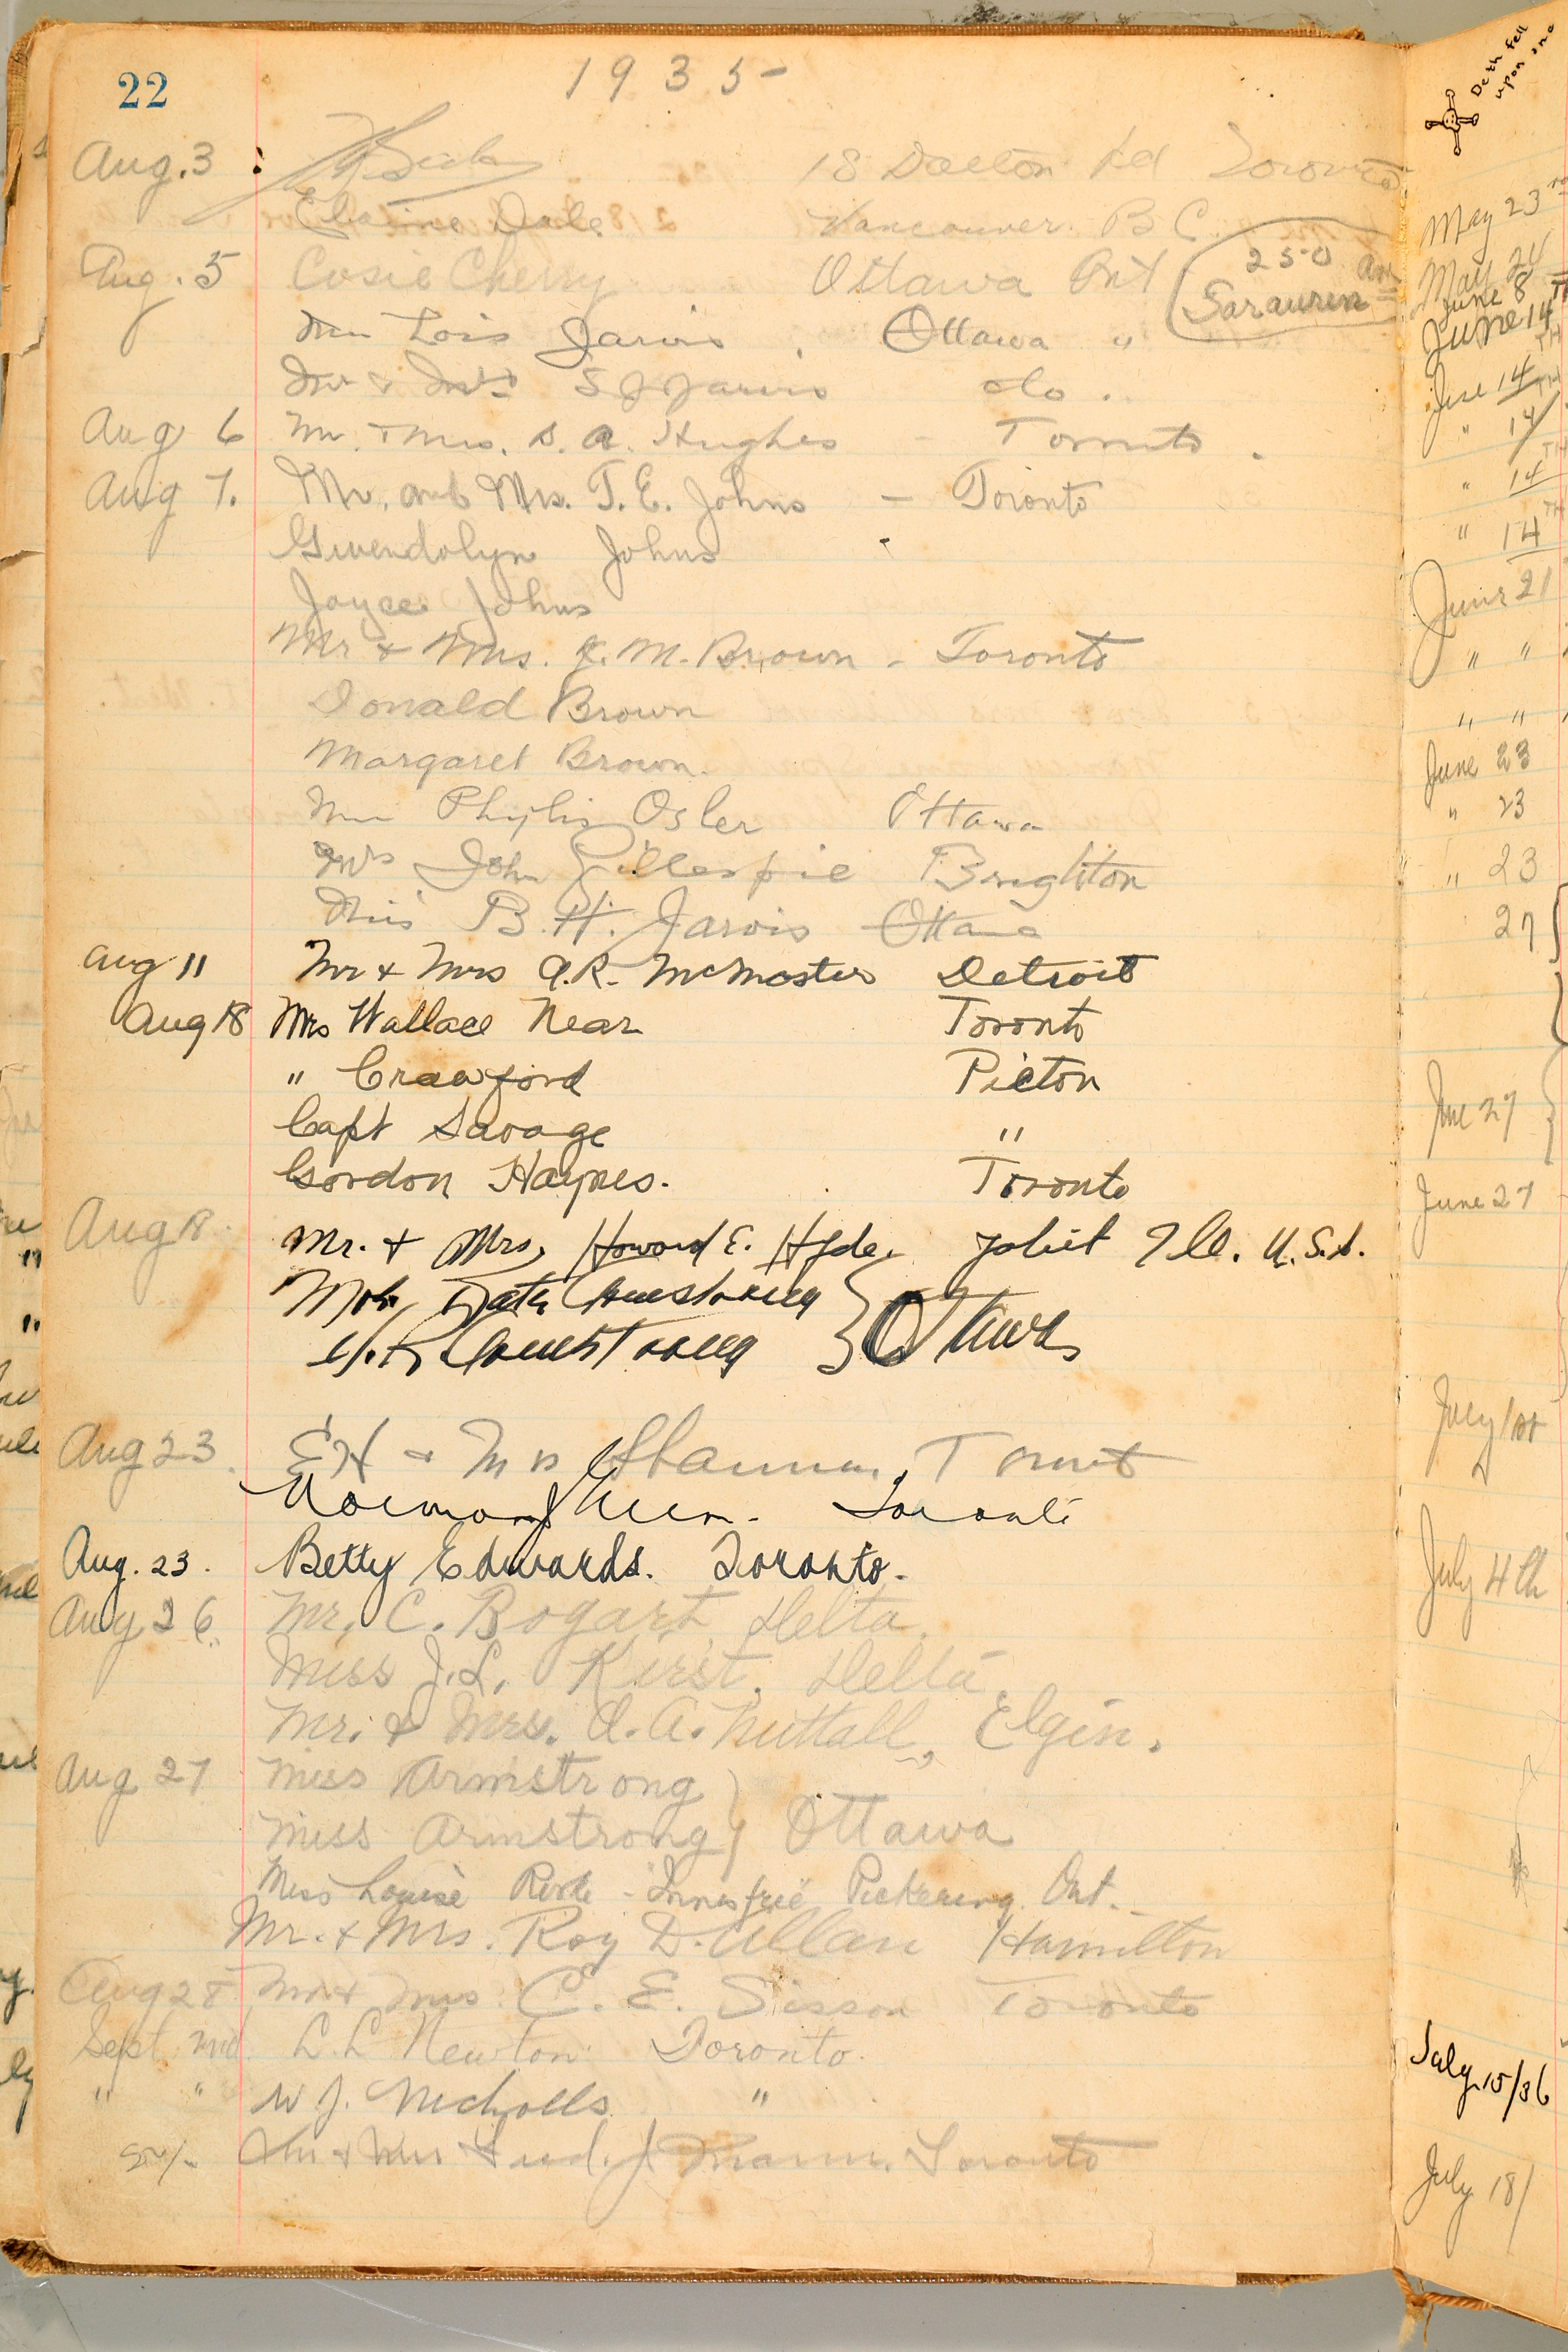 22
1935-
Aug. 3 18 Dalton Rd Toronto
Elaine Dale Vancouver. B C.
Aug. 5 Cosie Cherry Ottawa Ont
250
Sarauren
Lois Jarvis Ottawa "
Mr & Mrs S J Jarvis do.
Aug 6 Mr. & Mrs. D. A. Hughes - Toronto.
Aug 7. Mr. and Mrs. T. E. Johns - Toronto
Gwendolyn Johns
Joyce Johns
Mr & Mrs. J. M. Brown - Toronto
Donald Brown
Margaret Brown.
Phylis Osler Ottawa
Mrs John Gillespie Brighton
Miss B. H. Jarvis Ottawa
Aug 11 Mr & Mrs A.R. McMaster Detroit
Aug 18 Mrs Wallace Near Toronto
" Crawford Picton
Capt Savage "
Gordon Haynes. Toronto
Aug 18. Mr. & Mrs, Howard E. Hyde. Joliet Ill. U.S.A.
Armstrong
Armstrong } Ottawa
Aug 23. E H & Mrs Toronto
Norman Toronto
Aug. 23. Betty Edwards. Toronto.
Aug 26. Mr. C. Bogart, Delta.
Miss J. L. Kirst. Delta.
Mr. & Mrs. A. A. Nuttall, Elgin.
Aug 27 Miss Armstrong
Miss Armstrong } Ottawa
Miss Louise Pickering Ont.
Mr. & Mrs. Roy D. Allan Hamilton
Aug 28 Mr & Mrs C. E. Sisson Toronto
Sept 2nd L. L Newton Toronto.
" " W J. Nicholls "
Mr & Mrs Fred. J. Mann. Toronto
Deth fell
upon one
May 23rd
May 24
June 8
June 14TH
June 14TH
" 14
" 14TH
" 14TH
June 21
" "
" "
June 23
" 23
" 23
27
June 27
June 27
July 1st
July 4th
July 15/36
July 18/